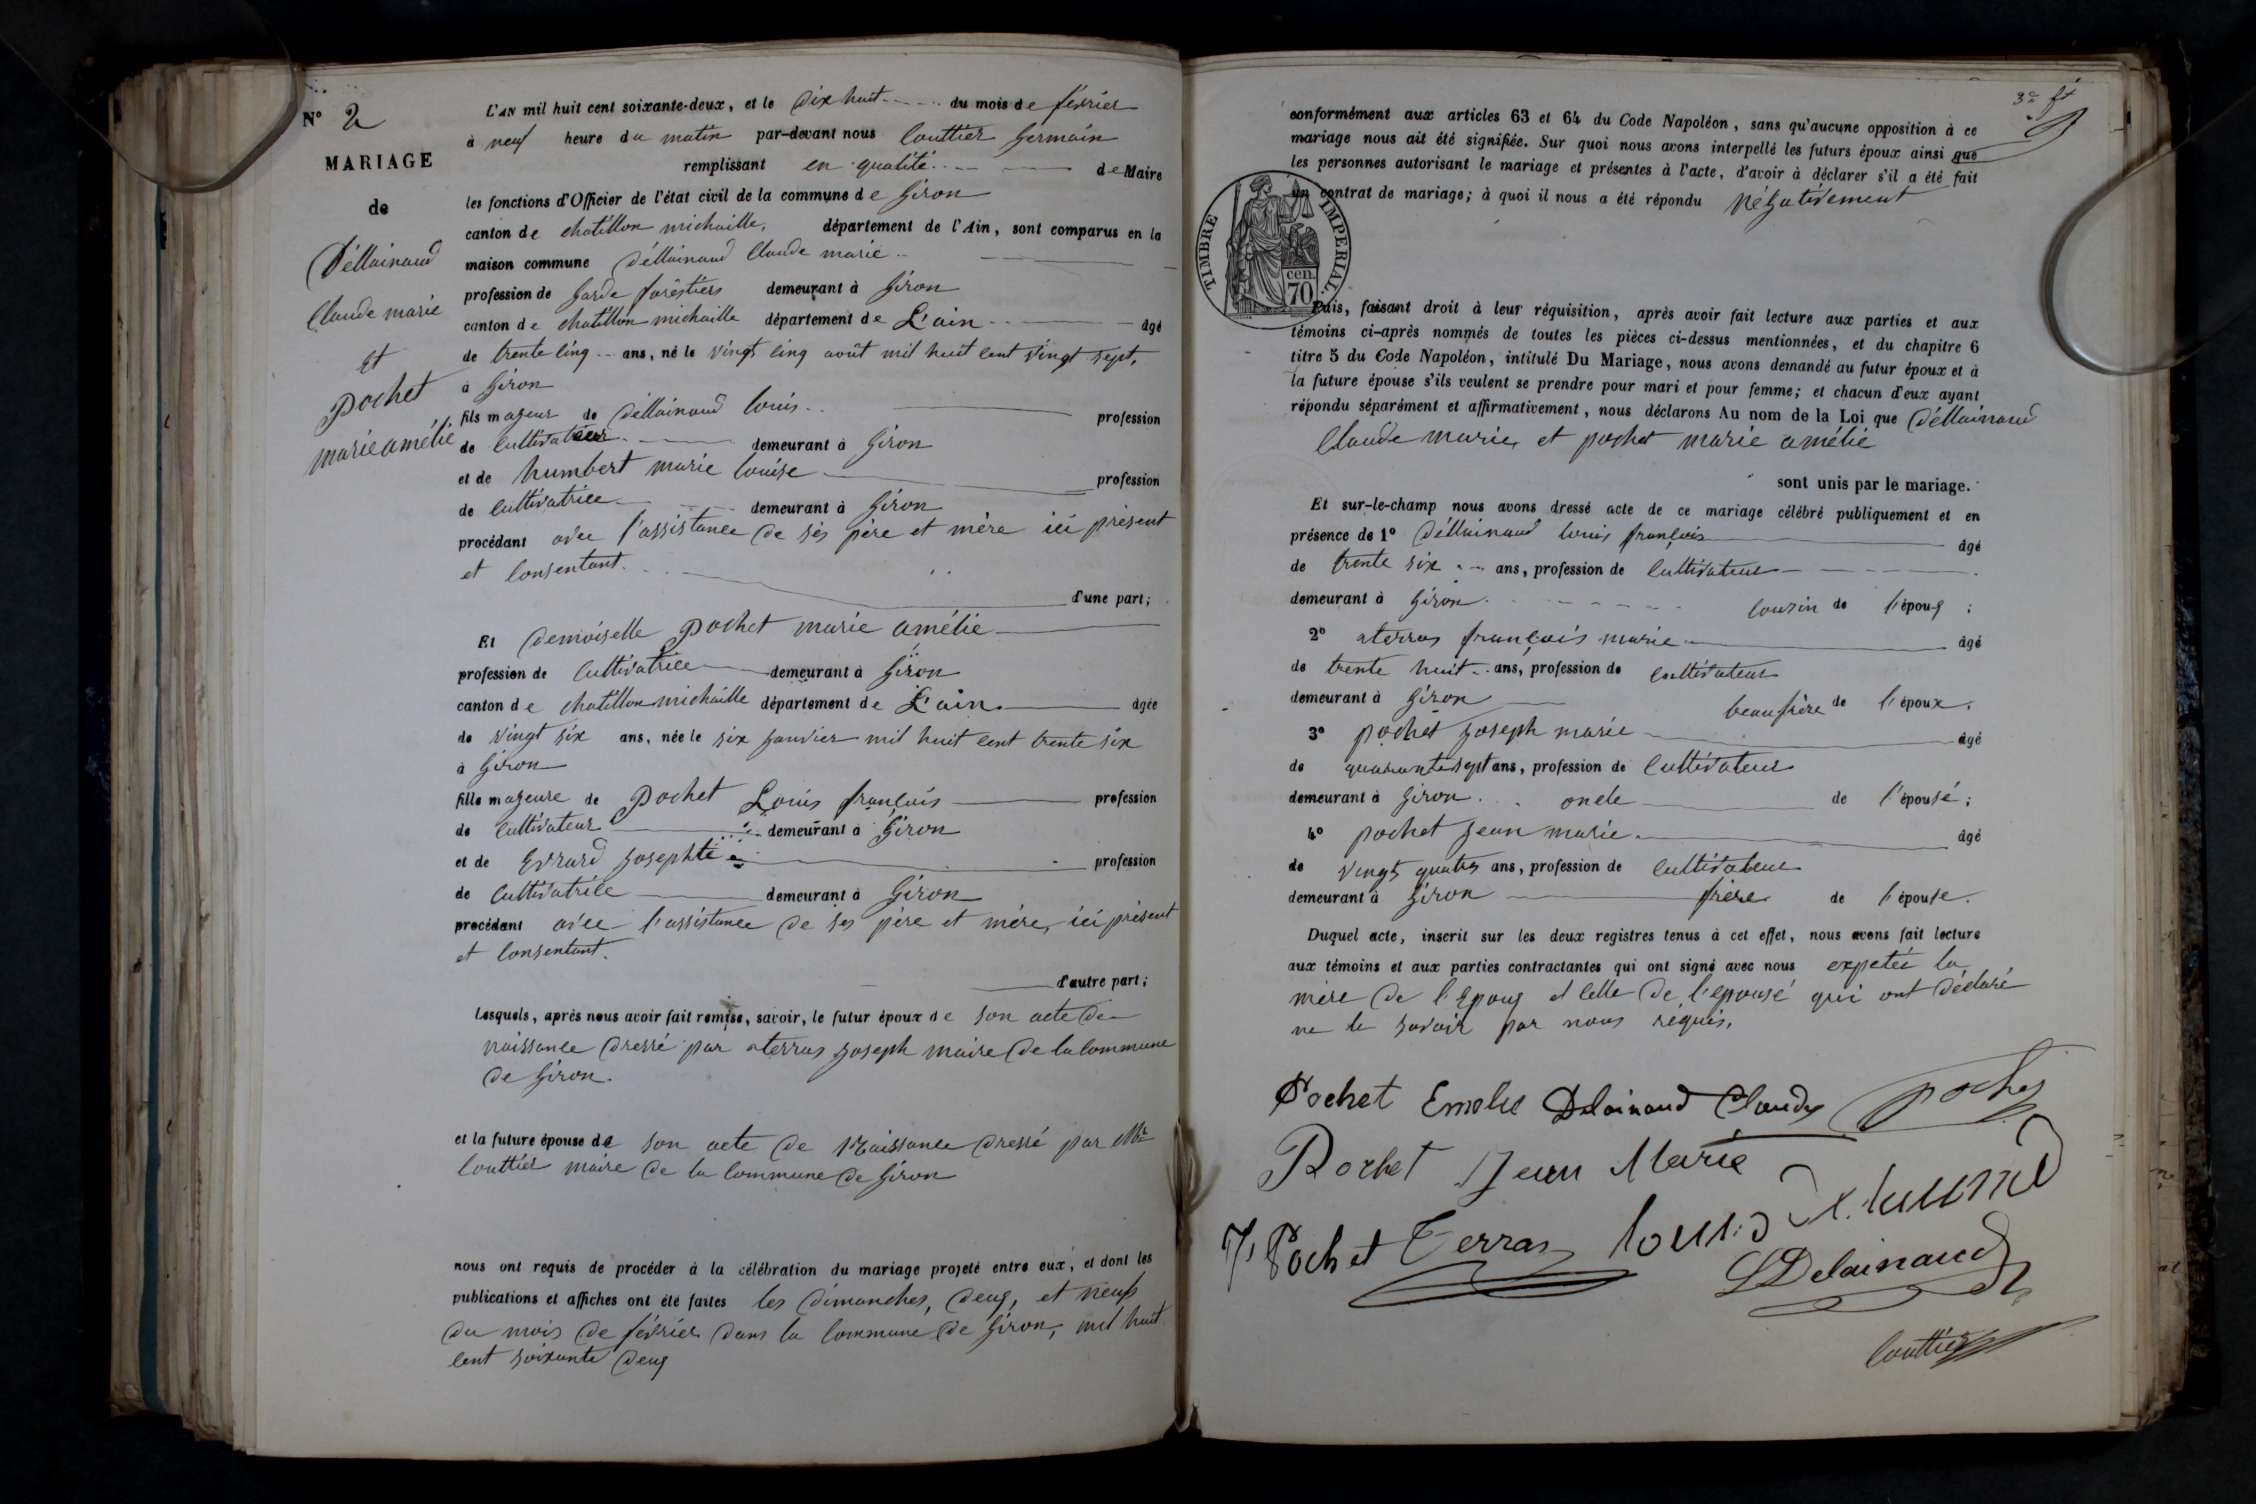 N° 2
MARIAGE
de
Déllainaud
Claude marie
et
Pochet
marie amélie
L'AN mil huit cent soixante-deux, et le dix huit du mois de février
à neuf heure du matin par-devant nous Couttier Germain
remplissant en qualité de Maire
les fonctions d'Officier de l'état civil de la commune de Giron
canton de chatillon michaille, département de l'Ain, sont comparus en la
maison commune Déllainaud Claude marie
profession de Garde forêstiers demeurant à Giron
canton de chatillon michaille département de L'ain âgé
de trente cinq ans, né le vingt cinq août mil huit cent vingt sept,
à Giron
fils majeur de Déllainaud Louis profession
de Cultivateur demeurant à Giron
et de humbert marie Louise profession
de cultivatrice demeurant à Giron
procédant avec l'assistance de sès père et mère ici présent
et consentant.
d'une part;
Et demoiselle Pochet marie amélie
profession de Cultivatrice demeurant à Giron
canton de chatillon michaille département de L'ain âgée
de vingt six ans, née le six janvier mil huit cent trente six
à Giron
fille majeure de Pochet Louis françois profession
de Cultivateur demeurant à Giron
et de Evrard Josephte profession
de Cultivatrice demeurant à Giron
procédant avec l'assistance de ses père et mère, ici présent
et consentant.
d'autre part;
Lesquels, après nous avoir fait remise, savoir, le futur époux de son acte de
naissance dressé par aterras Joseph maire de la commune
de Giron.
et la future épouse de son acte de Naissance dressé par Mr
Couttier maire de la commune de Giron
nous ont requis de procéder à la célébration du mariage projeté entre eux, et dont les
publications et affiches ont été faites les dimanches, deux, et neuf
du mois de février dans la commune de Giron, mil huit
cent soixante deux
3e ft
conformément aux articles 63 et 64 du Code Napoléon, sans qu'aucune opposition à ce
mariage nous ait été signifiée. Sur quoi nous avons interpellé les futurs époux ainsi que
les personnes autorisant le mariage et présentes à l'acte, d'avoir à déclarer s'il a été fait
un contrat de mariage; à quoi il nous a été répondu négativement
TIMBRE IMPERIAL.
70 cen.
Puis, faisant droit à leur réquisition, après avoir fait lecture aux parties et aux
témoins ci-après nommés de toutes les pièces ci-dessus mentionnées, et du chapitre 6
titre 5 du Code Napoléon, intitulé Du Mariage, nous avons demandé au futur époux et à
la future épouse s'ils veulent se prendre pour mari et pour femme; et chacun d'eux ayant
répondu séparément et affirmativement, nous déclarons Au nom de la Loi que Déllainaud
Claude marie, et pochet marie amélie
sont unis par le mariage.
Et sur-le-champ nous avons dressé acte de ce mariage célébré publiquement et en
présence de 1° Déllainaud Louis françois âgé
de trente six ans, profession de Cultivateur
demeurant à Giron cousin de l'époux ;
2° aterras françois marie âgé
de trente huit ans, profession de cultivateur
demeurant à Giron beaufrère de l'époux.
3° pochet Joseph marie âgé
de quarante sept ans, profession de Cultivateur
demeurant à Giron oncle de l'épousé ;
4° pochet Jean marie âgé
de vingt quatre ans, profession de Cultivateur
demeurant à Giron frère de l'épouse.
Duquel acte, inscrit sur les deux registres tenus à cet effet, nous avons fait lecture
aux témoins et aux parties contractantes qui ont signé avec nous expetée la
mère de l'Epoux et celle de l'épousé qui ont déclaré
ne le savoir par nous requis.
Pochet Emelie Delainaud Claude pochet
Pochet Jean Marie
J, Pochet Terras Louis
L Delainaud
Couttier